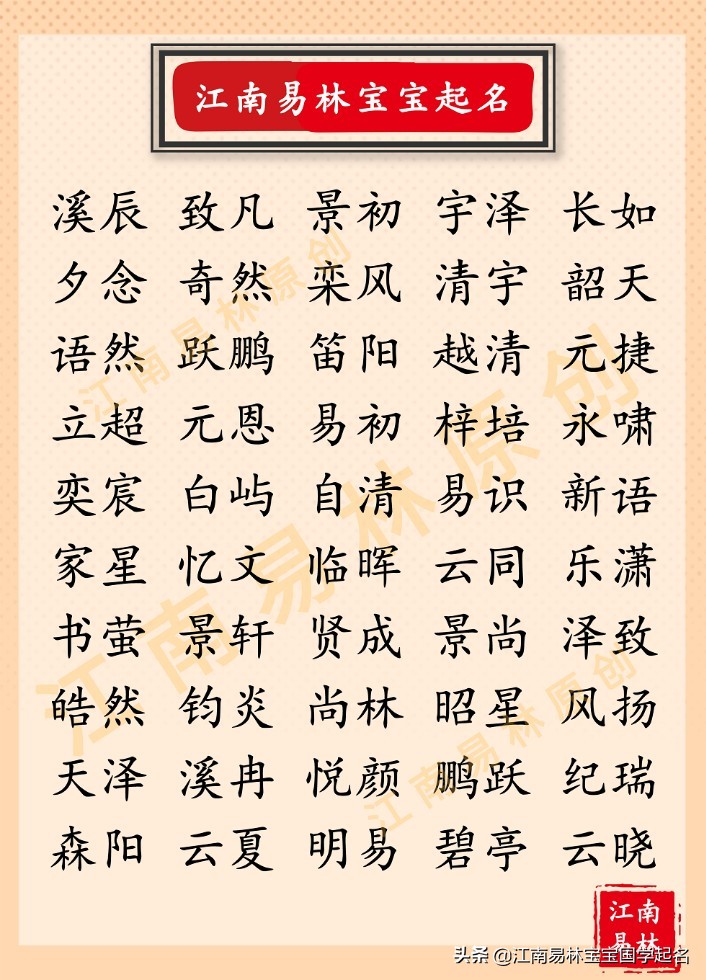 江南易林宝宝起名
溪辰 致凡 景初 宇泽 长如
夕念 奇然 栾风 清宇 韶天
语然 跃鹏 笛阳 越清 元捷
立超 元恩 易初 梓培 永啸
奕宸 白屿 自清 易识 新语
家星 忆文 临晖 云同 乐潇
书萤 景轩 贤成 景尚 泽致
皓然 钧炎 尚林 昭星 风扬
天泽 溪冉 悦颜 鹏跃 纪瑞
森阳 云夏 明易 碧亭 云晓
江南易林原创
江南易林原创
江南易林原创
江南
易林
头条 @江南易林宝宝国学起名